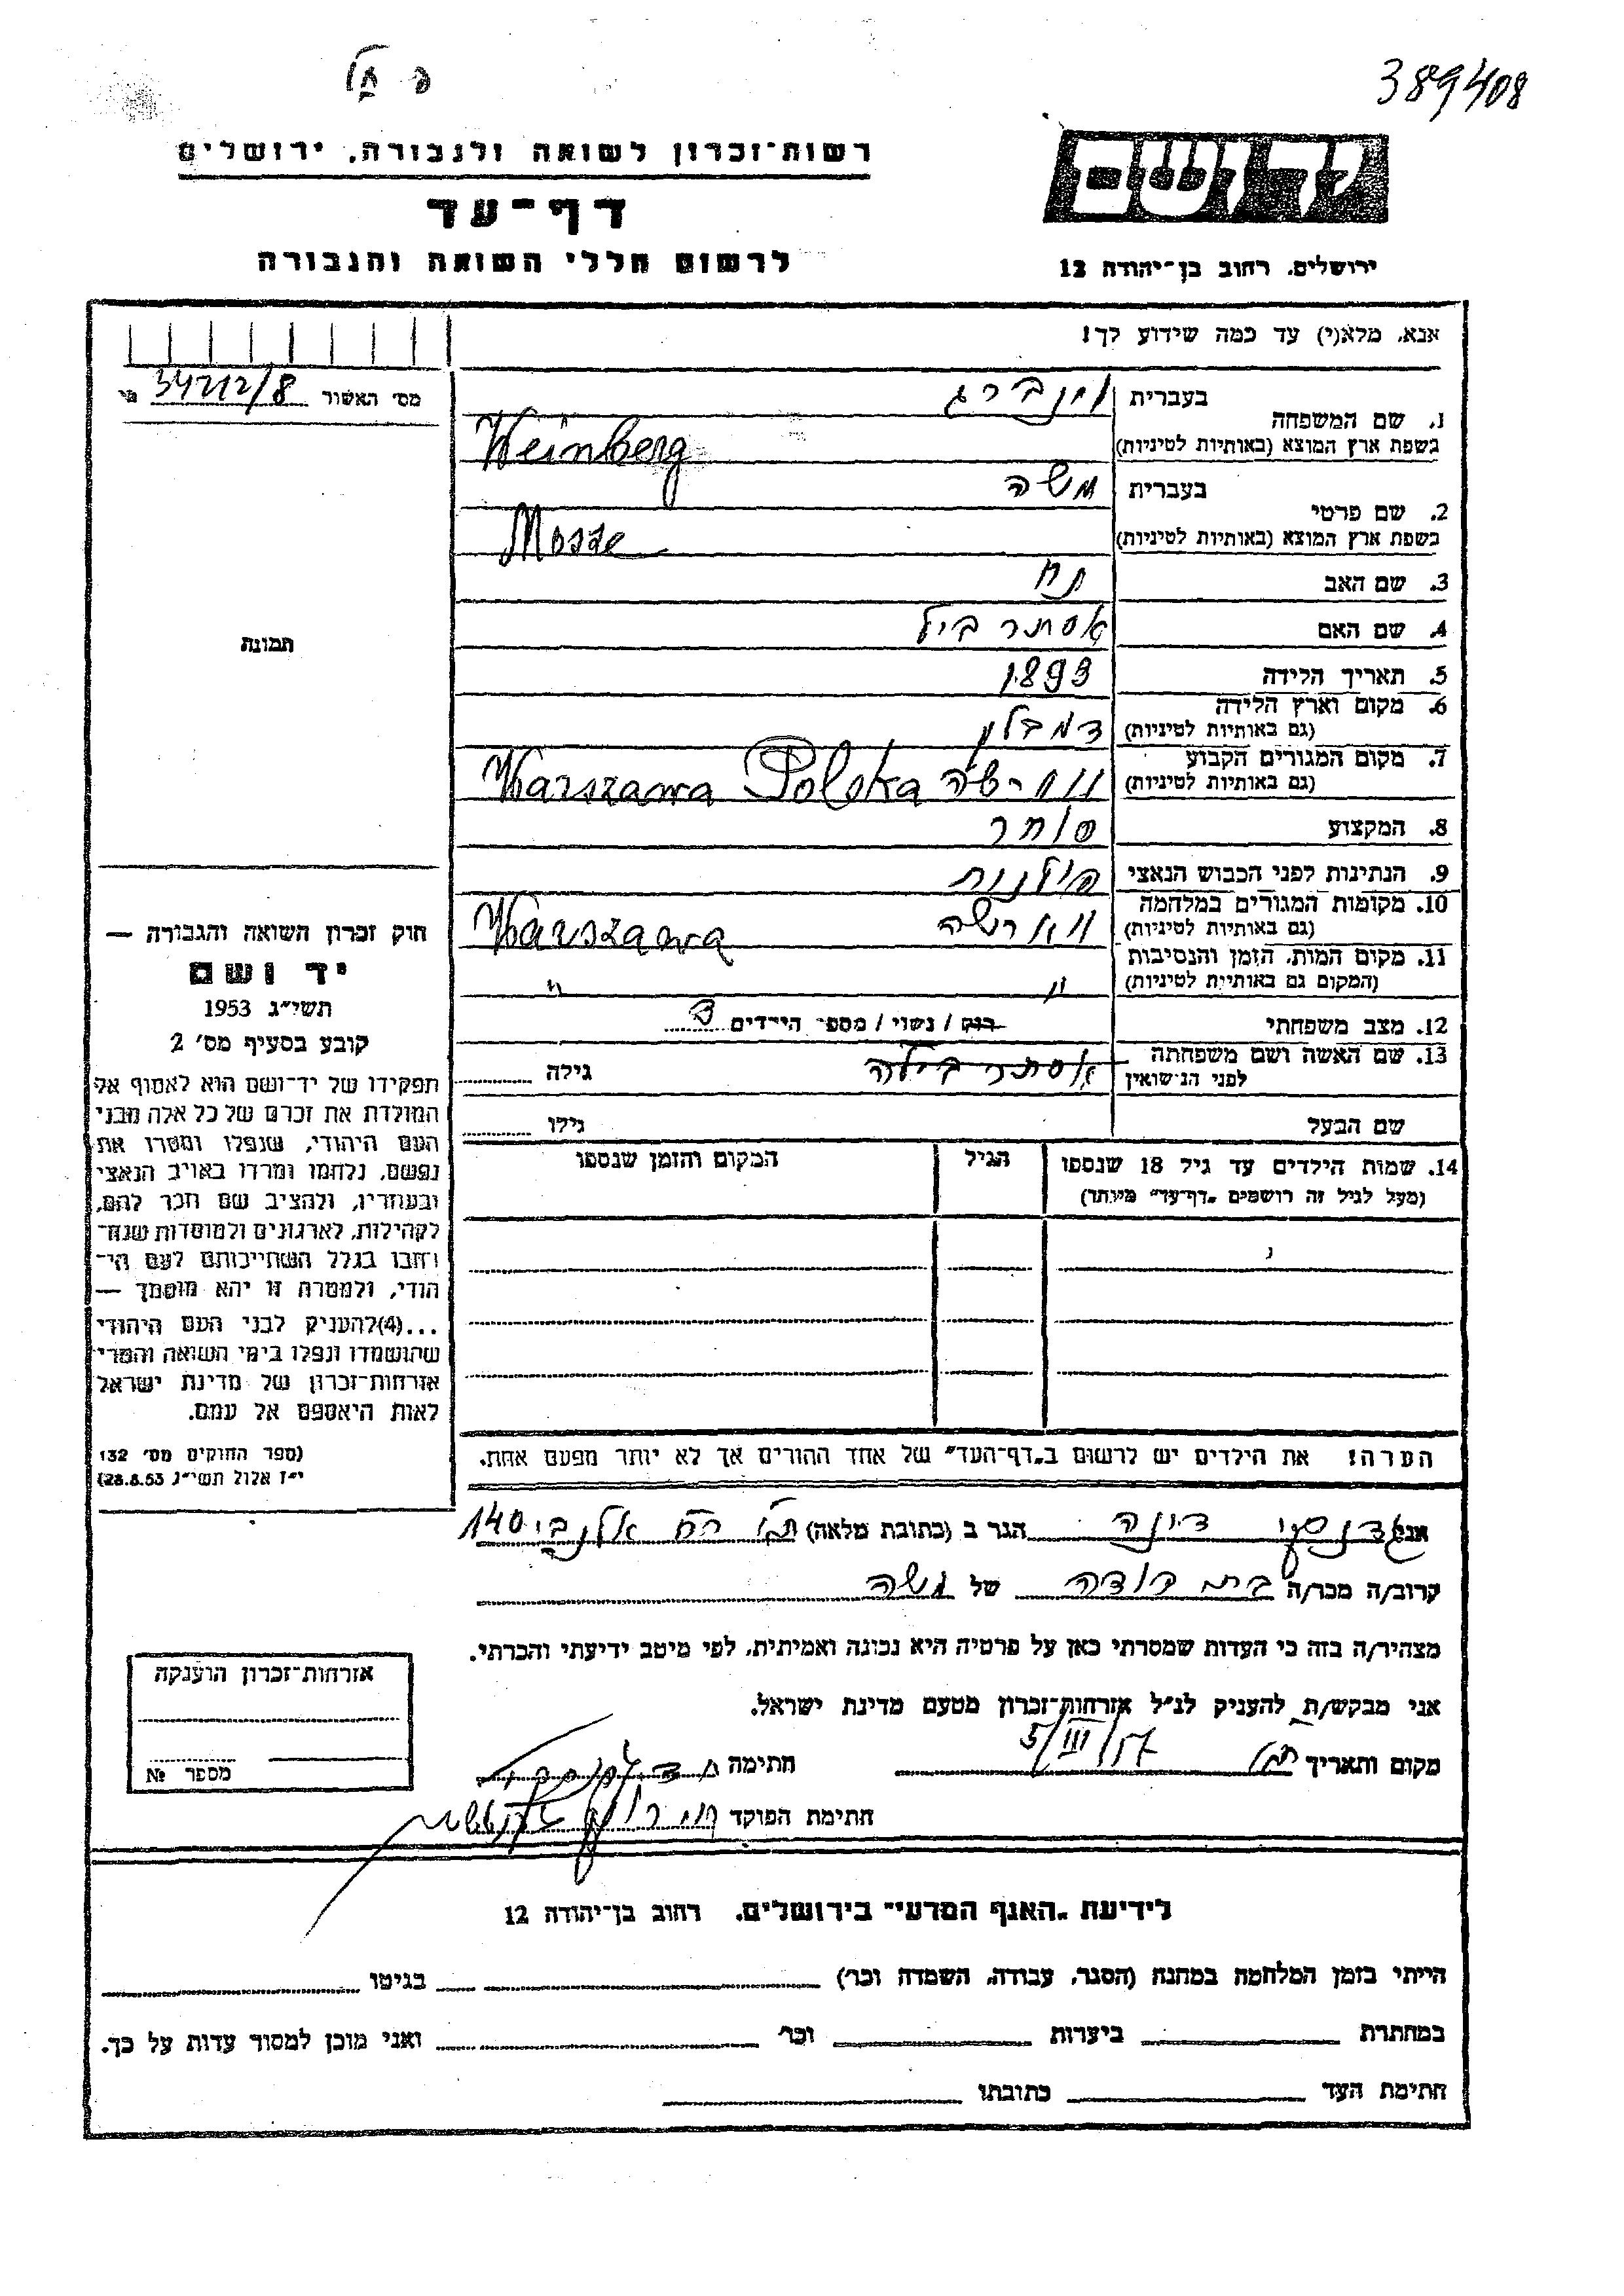 389408
רשות־זכרון לשואה ולגבורה, ירושלים
דף־עד
לרשום חללי השואה והגבורה
ידושם
ירושלים, רחוב בן־יהודה 12
אנא, מלא(י) עד כמה שידוע לך!
מס׳ האשור 34212/8 №
1. שם המשפחה
בעברית וינברג
בשפת ארץ המוצא (באותיות לטיניות) Weinberg
2. שם פרטי
בעברית משה
בשפת ארץ המוצא (באותיות לטיניות) Mosze
3. שם האב נח
4. שם האם אסתר בילה
5. תאריך הלידה 1893
6. מקום וארץ הלידה
(גם באותיות לטיניות) דמבלין
7. מקום המגורים הקבוע
(גם באותיות לטיניות) Warszawa Polska
8. המקצוע סוחר
9. הנתינות לפני הכבוש הנאצי פולנית
10. מקומות המגורים במלחמה
(גם באותיות לטיניות) ווארשה Warszawa
11. מקום המות, הזמן והנסיבות
(המקום גם באותיות לטיניות) " "
12. מצב משפחתי רווק / נשוי / מספר הילדים 3
13. שם האשה ושם משפחתה
לפני הנישואין אסתר בילה גילה
שם הבעל גילו
14. שמות הילדים עד גיל 18 שנספו הגיל המקום והזמן שנספו
(מעל לגיל זה רושמים „דף־עד״ מיותר)
הערה! את הילדים יש לרשום ב„דף־העד״ של אחד ההורים אך לא יותר מפעם אחת.
תמונה
חוק זכרון השואה והגבורה —
יד ושם
תשי״ג 1953
קובע בסעיף מס׳ 2
תפקידו של יד־ושם הוא לאסוף אל
המולדת את זכרם של כל אלה מבני
העם היהודי, שנפלו ומסרו את
נפשם, נלחמו ומרדו באויב הנאצי
ובעוזריו, ולהציב שם וזכר להם,
לקהילות, לארגונים ולמוסדות שנח־
רבו בגלל השתייכותם לעם הי־
הודי, ולמטרה זו יהא מוסמך —
...(4) להעניק לבני העם היהודי
שהושמדו ונפלו בימי השואה והמרי
אזרחות־זכרון של מדינת ישראל
לאות היאספם אל עמם.
(ספר החוקים מס׳ 132
י״ז אלול תשי״ג 28.8.53)
אני דינה הגר ב (כתובת מלאה) ת״א רח אלנבי 140
קרוב/ה מכר/ה בת דודה של משה
מצהיר/ה בזה כי העדות שמסרתי כאן על פרטיה היא נכונה ואמיתית, לפי מיטב ידיעתי והכרתי.
אני מבקש/ת להעניק לנ״ל אזרחות־זכרון מטעם מדינת ישראל.
מקום ותאריך ת״א 5/III/57 חתימה
חתימת הפוקד
אזרחות־זכרון הוענקה
מספר №
לידיעת „האגף המדעי״ בירושלים, רחוב בן־יהודה 12
הייתי בזמן המלחמה במחנה (הסגר, עבודה, השמדה וכו׳) בגיטו
במחתרת ביערות וכו׳ ואני מוכן למסור עדות על כך.
חתימת העד כתובתו